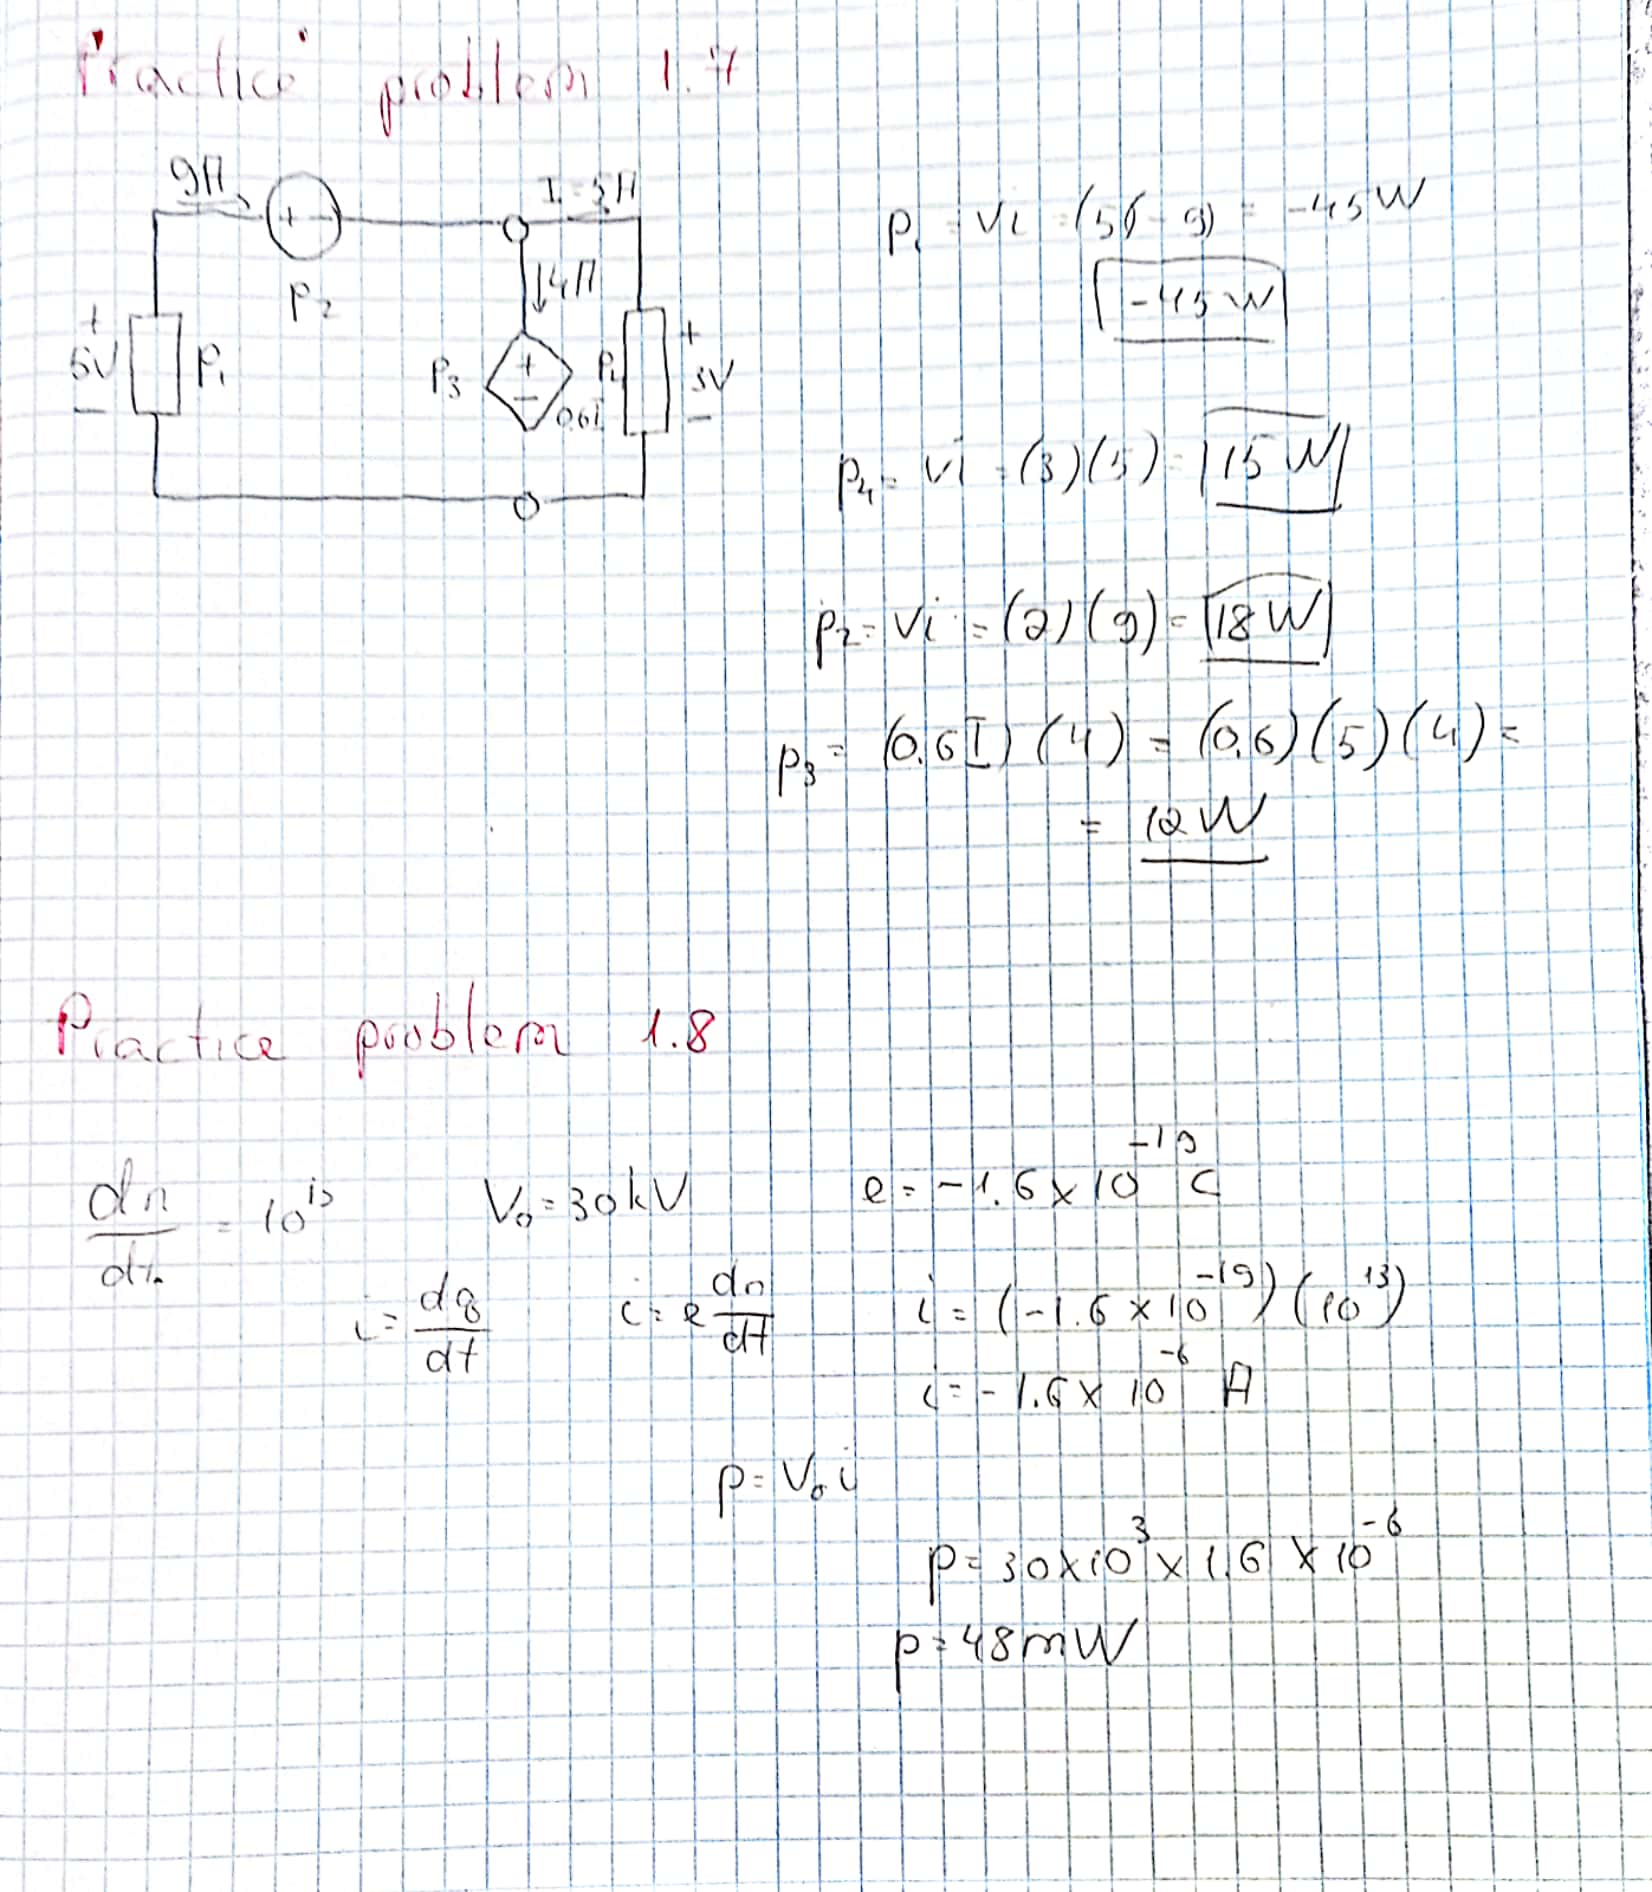 Practice problem 1.7
9A
I = 5A
+ -
p2
↓4A
+
5V
-
p1
p3
+
-
0.6I
p4
+
3V
-
p1 = Vi = (5)(-9) = -45W
-45W
p4 = Vi = (3)(5) = 15W
p2 = Vi = (2)(9) = 18W
p3 = (0.6I)(4) = (0.6)(5)(4) =
= 12W
Practice problem 1.8
dn/dt = 10^13 V0 = 30kV e = -1.6 x 10^-19 C
i = dq/dt i = e dn/dt i = (-1.6 x 10^-19)(10^13)
i = -1.6 x 10^-6 A
p = V0 i
p = 30x10^3 x 1.6 x 10^-6
p = 48mW